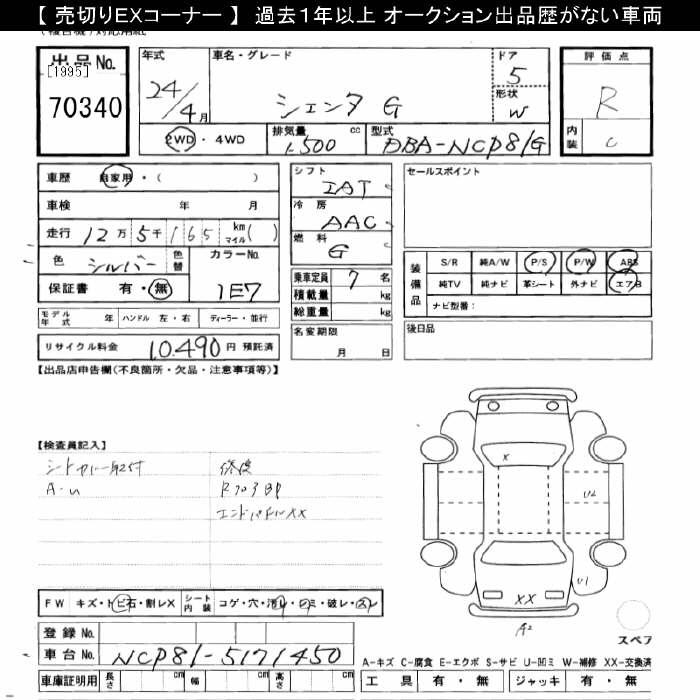 【 売切りEXコーナー 】 過去1年以上 オークション出品歴がない車両
出品No.
[1995]
70340
年式
24/4月
車名・グレード
シエンタ G
ドア
5
形状
W
評価点
R
内装
C
2WD ・ 4WD
排気量 cc
1500
型式
DBA-NCP81G
車歴 自家用・( )
車検 年 月
走行 12万 5千 165 km マイル( )
色 シルバー 色替
カラーNo.
1E7
保証書 有・無
シフト
IAT
冷房
AAC
燃料
G
乗車定員 7 名
積載量 kg
総重量 kg
名変期限
月 日
セールスポイント
装備品
S/R 純A/W P/S P/W ABS
純TV 純ナビ 革シート 外ナビ エアB
ナビ型番:
後日品
モデル年式 年 ハンドル 左・右 ディーラー・並行
リサイクル料金 10,490 円 預託済
【出品店申告欄(不良箇所・欠品・注意事項等)】
【検査員記入】
シートカバー取付 修復
A-U R フロアBP
エンドパネルXX
X
U2
U1
XX
A2
スペア
FW キズ・トビ石・割レX シート内装 コゲ・穴・汚レ・シミ・破レ・スレ
登録No.
車台No. NCP81-5171450
車庫証明用 長さ cm 幅 cm 高さ cm
A-キズ C-腐食 E-エクボ S-サビ U-凹ミ W-補修 XX-交換済
工具 有・無 ジャッキ 有・無